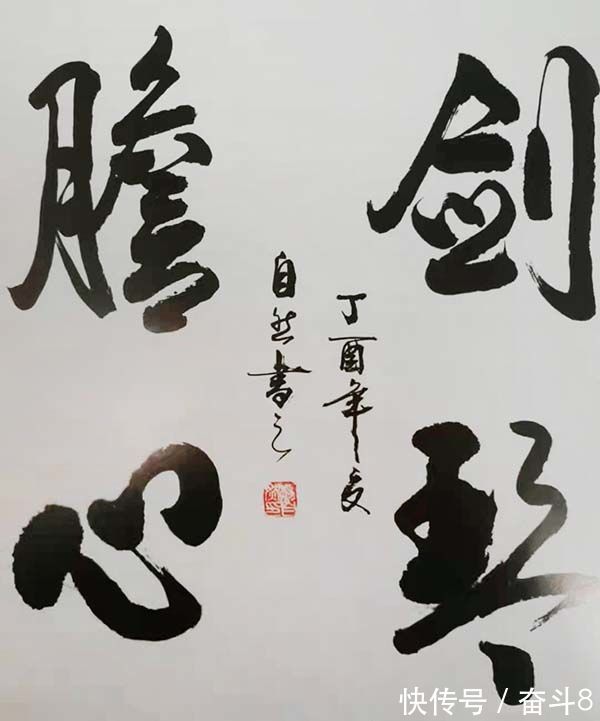 剑膽
琴心
丁酉年夏
自然書之
快传号 / 奋斗8